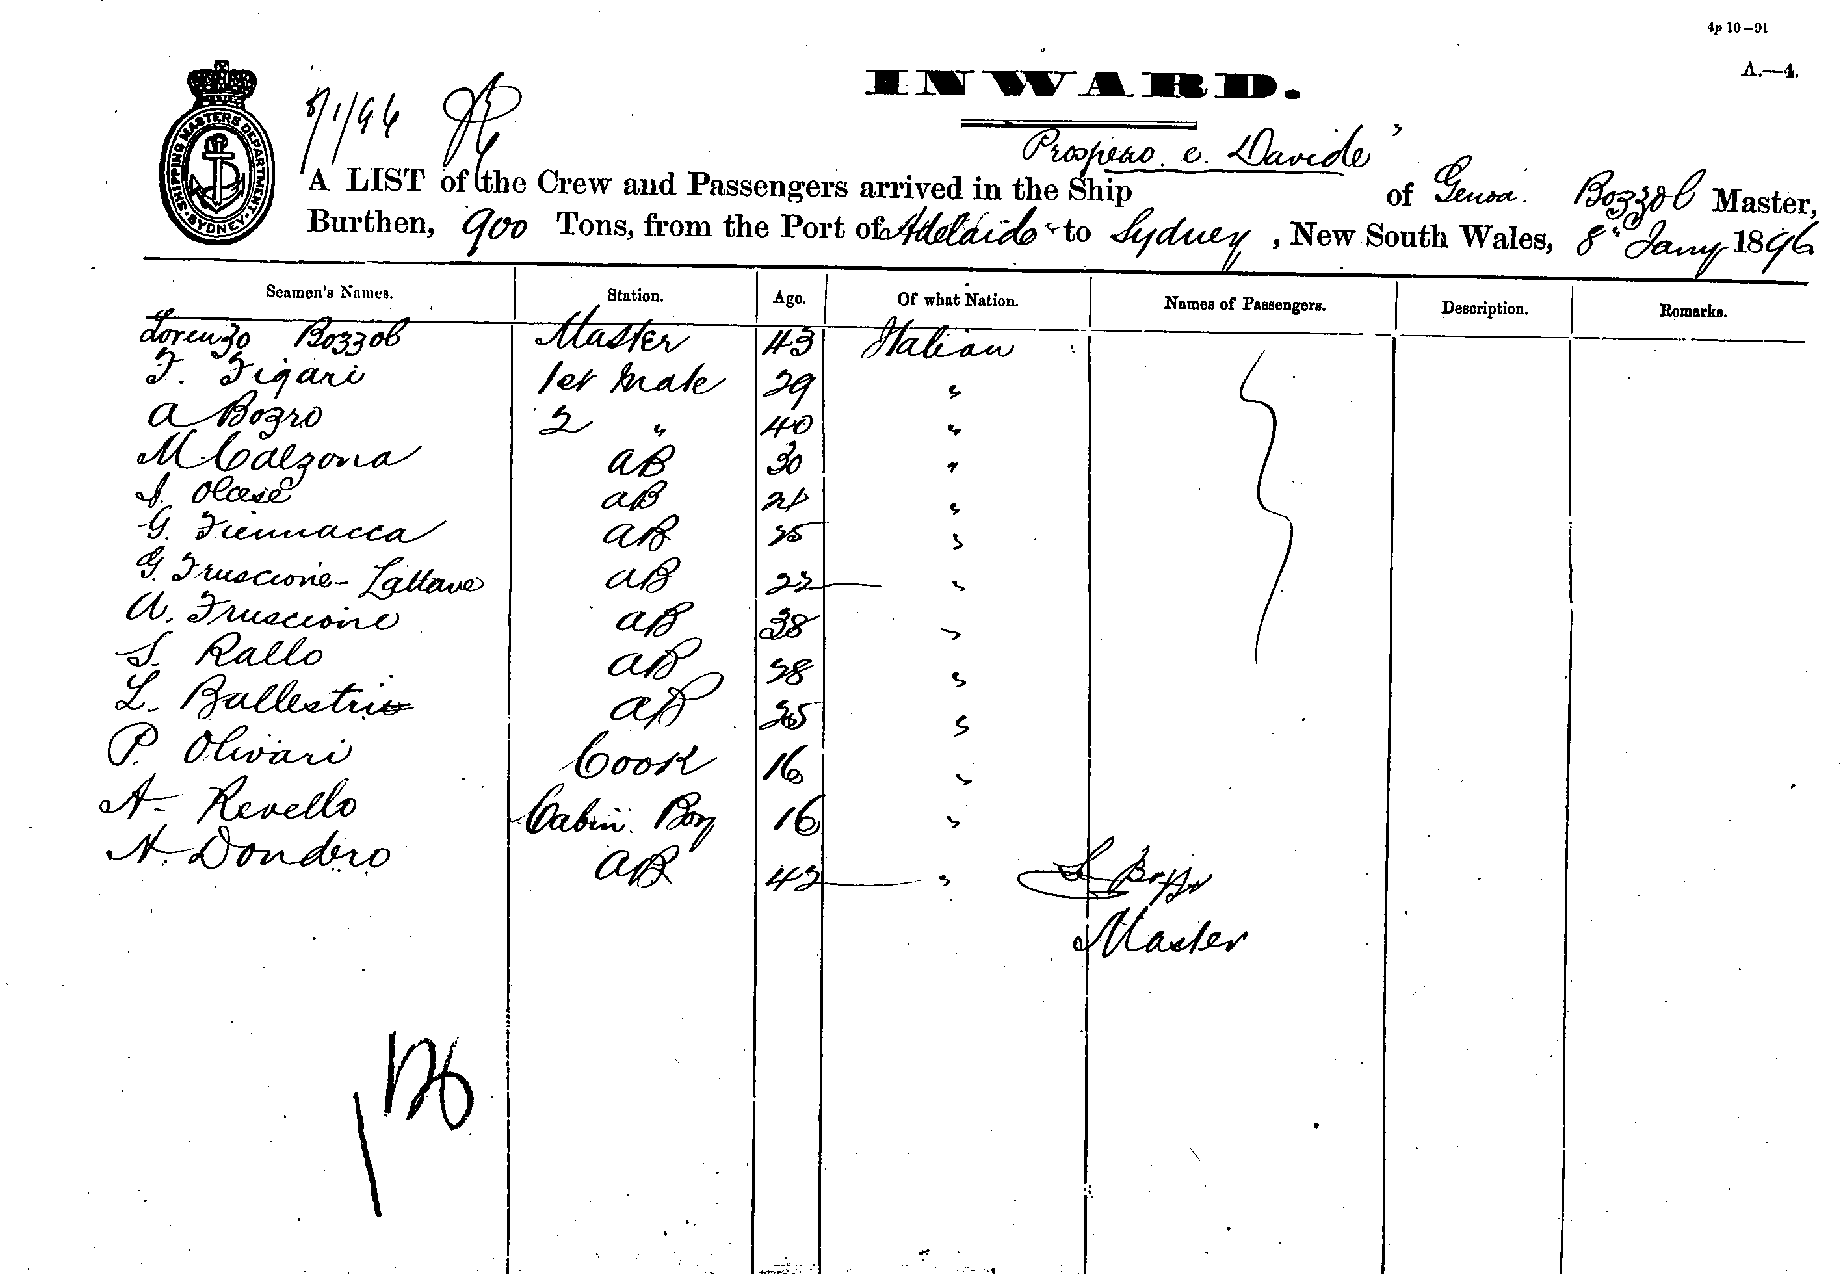 4p 10–91
A.—4.
INWARD.
SHIPPING MASTERS DEPARTMENT SYDNEY
8/1/96
"Prospero e Davide"
A LIST of the Crew and Passengers arrived in the Ship of Genoa. Bozzol Master,
Burthen, 900 Tons, from the Port of Adelaide to Sydney, New South Wales, 8th Jany 1896
Seamen's Names. Station. Age. Of what Nation. Names of Passengers. Description. Remarks.
Lorenzo Bozzol Master 43 Italian
F. Figari 1st Mate 29 "
A Bozzo 2 " 40 "
M Calzona AB 30 "
AB "
G. AB 25 "
G. Fruscione- AB 22 "
A. Fruscione AB 38 "
S. Rallo AB 28 "
L. AB 25 "
P. Olivari Cook 16 "
A. Revello Cabin Boy 16 "
A. Dondero AB 42 "
L Bozzo
Master